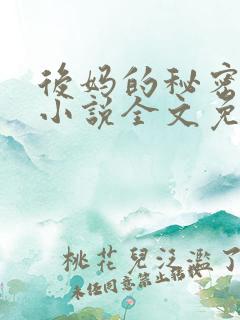 後妈的秘密
小說全文免
桃花兒泛濫了
未經同意禁止轉載